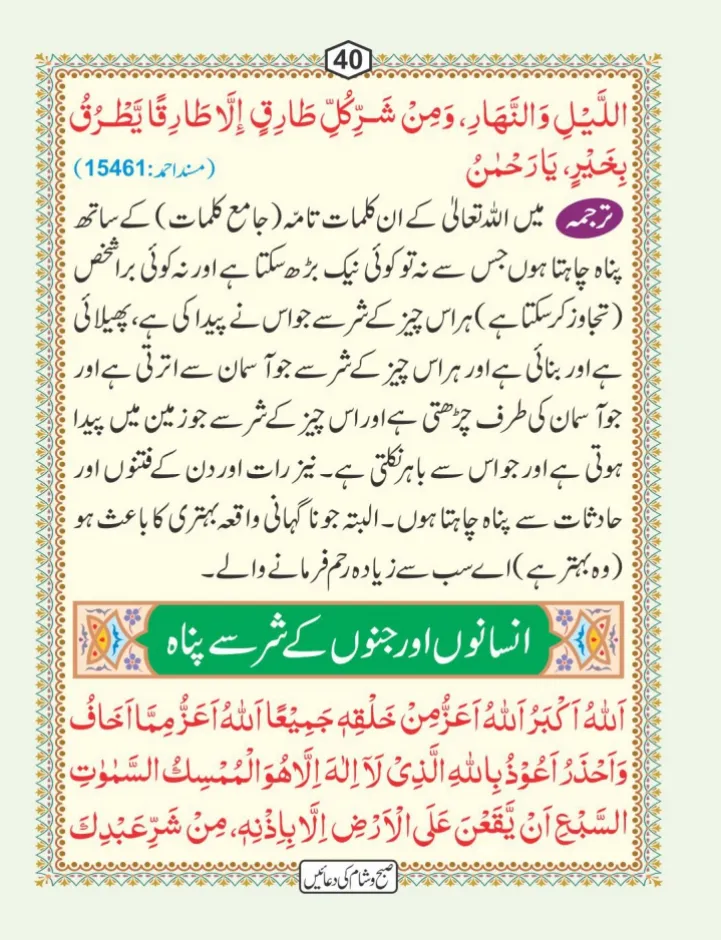 40
اللَّيْلِ وَالنَّهَارِ، وَمِنْ شَرِّ كُلِّ طَارِقٍ إِلَّا طَارِقًا يَّطْرُقُ
بِخَيْرٍ، يَارَحْمٰنُ (مسند احمد:15461)
ترجمہ میں اللہ تعالیٰ کے ان کلمات تامّہ (جامع کلمات) کے ساتھ
پناہ چاہتا ہوں جس سے نہ تو کوئی نیک بڑھ سکتا ہے اور نہ کوئی برا شخص
(تجاوز کرسکتا ہے) ہر اس چیز کے شر سے جو اس نے پیدا کی ہے، پھیلائی
ہے اور بنائی ہے اور ہر اس چیز کے شر سے جو آسمان سے اترتی ہے اور
جو آسمان کی طرف چڑھتی ہے اور اس چیز کے شر سے جو زمین میں پیدا
ہوتی ہے اور جو اس سے باہر نکلتی ہے۔ نیز رات اور دن کے فتنوں اور
حادثات سے پناہ چاہتا ہوں۔ البتہ جو ناگہانی واقعہ بہتری کا باعث ہو
(وہ بہتر ہے) اے سب سے زیادہ رحم فرمانے والے۔
انسانوں اور جنوں کے شر سے پناہ
اَللّٰهُ اَكْبَرُ اَللّٰهُ اَعَزُّ مِنْ خَلْقِهٖ جَمِيْعًا اَللّٰهُ اَعَزُّ مِمَّا اَخَافُ
وَاَحْذَرُ اَعُوْذُ بِاللّٰهِ الَّذِیْ لَآ اِلٰهَ اِلَّا هُوَ الْمُمْسِكُ السَّمٰوٰتِ
السَّبْعِ اَنْ يَّقَعْنَ عَلَی الْاَرْضِ اِلَّا بِاِذْنِهٖ، مِنْ شَرِّ عَبْدِكَ
صبح و شام کی دعائیں